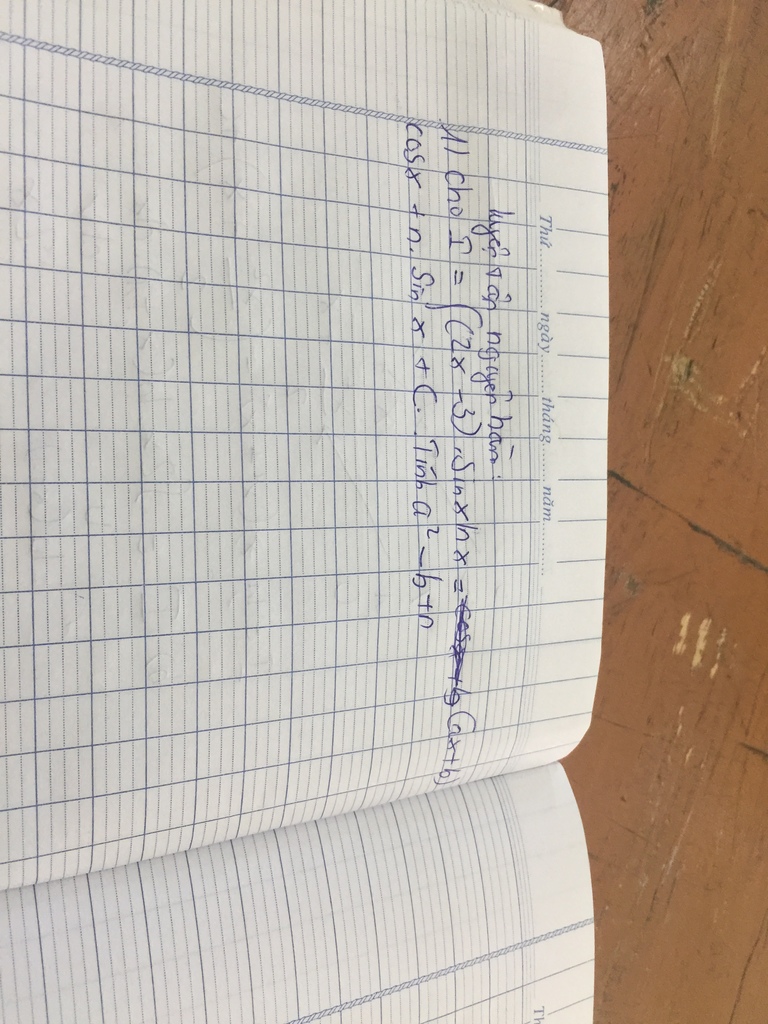 Thứ ........... ngày ......... tháng ......... năm ............
luyện tập nguyên hàm:
1) cho I = ∫(2x - 3).sin x
= (ax+b)
cosx + n. Sin x + C. Tính a² - b + n